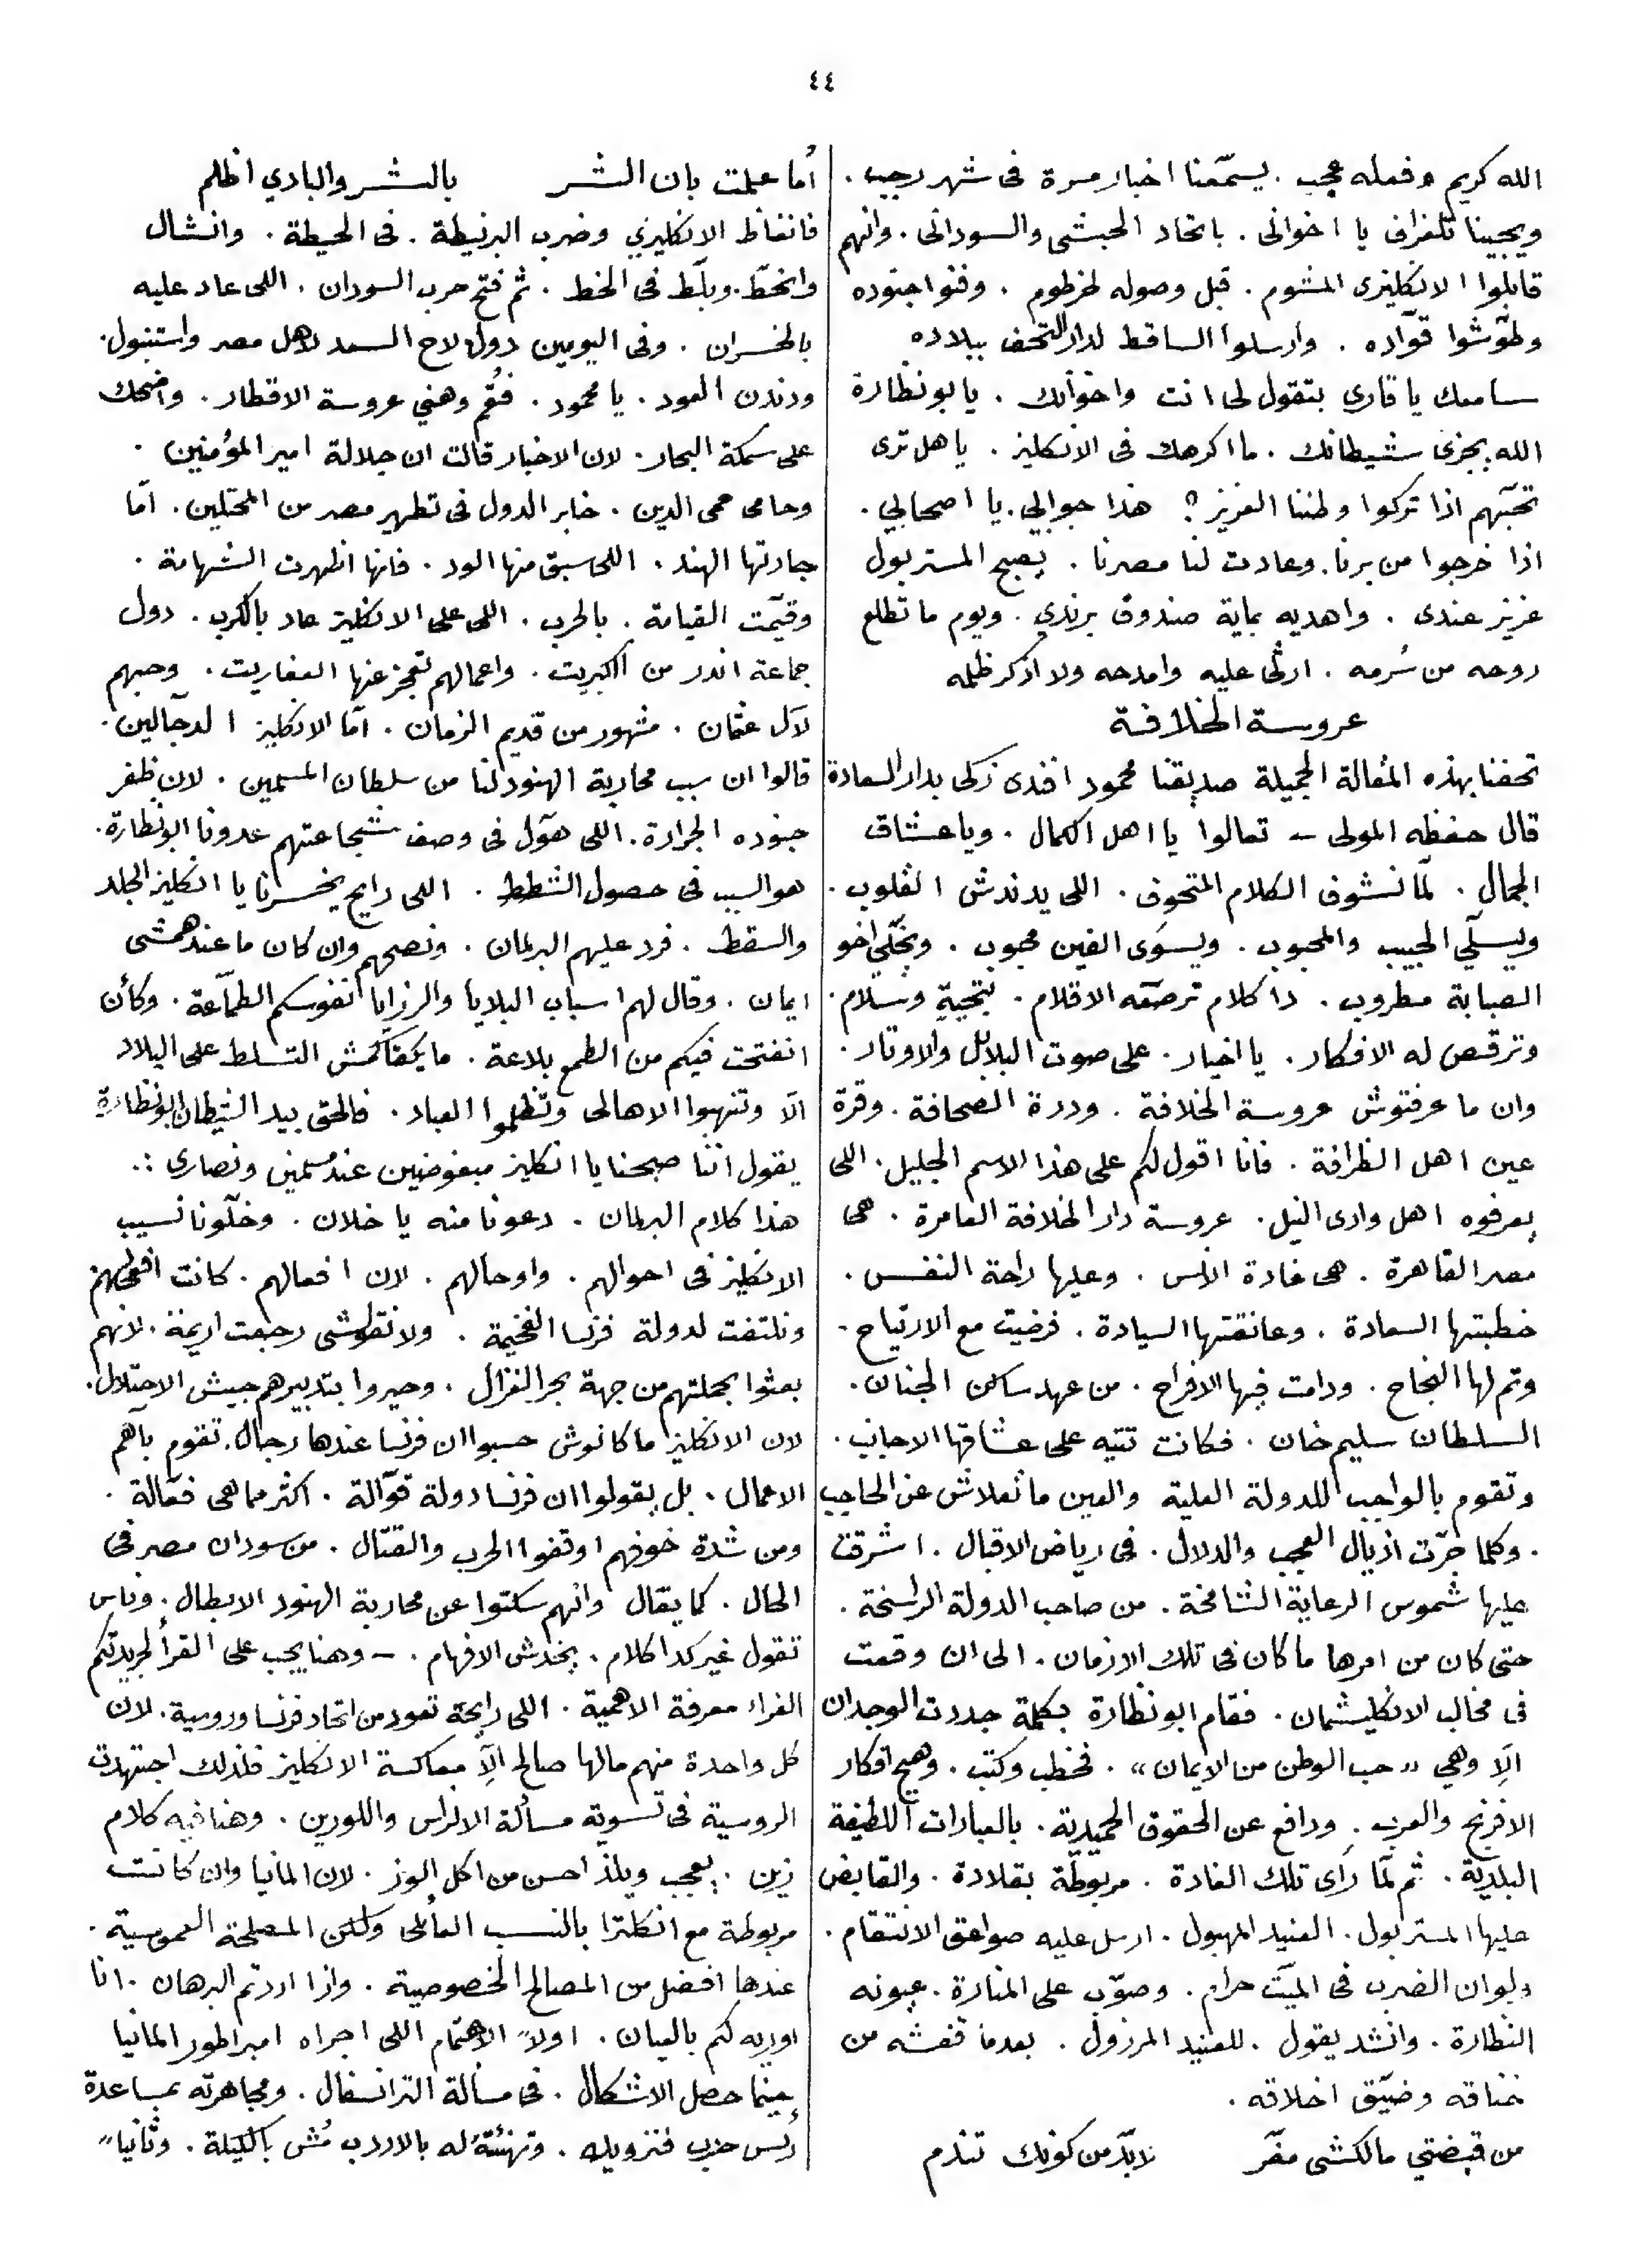 ٤٤
الله كريم وفعله عجب . يسمّعنا اخبار مسرة فى شهر رجب .
ويجيبنا تلغراف يا اخوانى . باتحاد الحبشى والسودانى . وانهم
قابلوا الانكليزى المشوم . قبل وصوله لخرطوم . وفنوا جنوده
وطوّشوا قوّاده . وارسلوا الساقط لدار التحف ببلاده
سامعك يا قارى بتقول لى انت واخوانك . يا بو نظارة
الله يجزى شيطانك . ما اكرهك فى الانكليز . يا هل ترى
تحبّهم اذا تركوا وطننا العزيز ؟ هذا جوابي . يا اصحابي .
اذا خرجوا من برنا . وعادت لنا مصرنا . يصبح المستر بول
عزيز عندى . واهديه بماية صندوق برندي . ويوم ما تطلع
روحه من سُرمه . ارثى عليه وامدحه ولا اذكر ظلمه
عروسة الخلافة
تحفنا بهذه المقالة الجميلة صديقنا محمود افندى زكى بدار السعادة
قال حفظه المولى – تعالوا يا اهل الكمال . ويا عشاق
الجمال . لمّا نشوف الكلام المتحوف . اللى يدندش القلوب .
ويسلّي الحبيب والمحبوب . ويسوَى الفين محبوب . ويخلّي اخو
الصبابة مطروب . دا كلام ترصّعه الاقلام . بتحيةٍ وسلام .
وترقص له الافكار . يا اخيار . على صوت البلابل والاوتار .
وان ما عرفتوش عروسة الخلافة . ودرة الصحافة . وقرة
عين اهل الظرافة . فانا اقول لكم على هذا الاسم الجليل . اللى
يعرفوه اهل وادى النيل . عروسة دار الخلافة العامرة . هى
مصر القاهرة . هى غادة الانس . وعليها راحة النفس .
خطبتها السعادة . وعانقتها السيادة . فرضيت مع الارتياح .
وتم لها النجاح . ودامت فيها الافراح . من عهد ساكن الجنان .
السلطان سليم خان . فكانت تتيه على عشاقها الاجانب .
وتقوم بالواجب للدولة العلية والعين ما تعلاش عن الحاجب
. وكلما جرّت اذيال العجب والدلال . فى رياض الاقبال . اشرقت
عليها شموس الرعاية الشامخة . من صاحب الدولة الراسخة .
حتى كان من امرها ما كان فى تلك الازمان . الى ان وقعت
فى مخالب الانكليشمان . فقام ابو نظارة بكلمة جددت الوجدان
الّا وهي « حب الوطن من الايمان » . فخطب وكتب . وهيج افكار
الافرنج والعرب . ودافع عن الحقوق الحميدية . بالعبارات اللطيفة
البلديّة . ثم لمّا رأى تلك الغادة . مربوطة بقلادة . والقابض
عليها المستر بول . العنيد المهبول . ارسل عليه صواعق الانتقام .
ولو ان الضرب فى الميّت حرام . وصوّب على المنارة . عيونه
النظارة . وانشد يقول . للعنيد المرزول . بعدما قفشه من
خناقه وضيّق اخلاقه .
من قبضتي مالكشى مفرّ لابدّ من كونك تندم
أما علمت بان الشر بالشر والبادي اظلم
فانغاظ الانكليزي وضرب البرنيطة . فى الحيطة . وانشال
وانحَطّ . وبلّط فى الخط . ثم فتح حرب السودان . اللى عاد عليه
بالخسران . وفى اليومين دول لاح السعد لاهل مصر واستنبول .
ودندن العود . يا محمود . فقُم وهني عروسة الاقطار . واضحك
على سمكة البحار . لان الاخبار قالت ان جلالة امير المؤمنين .
وحامى حمى الدين . خابر الدول فى تطهير مصر من المحتلين . امّا
جارتها الهند . اللى سبق منها الود . فانها اظهرت الشهامة .
وقيّمت القيامة . بالحرب . اللى على الانكليز عاد بالكرب . دول
جماعة اندر من الكبريت . واعمالهم تعجز عنها العفاريت . وحبهم
لآل عثمان . مشهور من قديم الزمان . امّا الانكليز الدجّالين .
قالوا ان سبب محاربة الهنود لنا من سلطان المسلمين . لان ظفر
جنوده الجرارة . اللى هوّل فى وصف شجاعتهم عدونا ابو نظارة .
هو السبب فى حصول الشطط . اللى رايح يخسرنا يا انكليز الجلد
والسقط . فرد عليهم البرلمان . ونصحهم وان كان ما عندهمشى
ايمان . وقال لهم اسباب البلايا والرزايا انفوسكم الطمّاعة . وكأن
انفتحت فيكم من الطمع بلاعة . ما يكفاكمش التسلط على البلاد
الّا وتنهبوا الاهالى وتظلموا العباد . فالحق بيد الشيطان ابو نظارة
يقول اننا صبحنا يا انكليز مبغوضين عند مسلمين ونصارى .
هذا كلام البرلمان . دعونا منه يا خلان . وخلّونا نسيب
الانكليز فى احوالهم . واوحالهم . لان افعالهم . كانت
ونلتفت لدولة فرنسا الفخيمة . ولا تقولوشى رجعت اريمة . لانهم
بعثوا بحملتهم من جهة بحر الغزال . وحيروا بتدبيرهم جيش الاحتلال .
لان الانكليز ما كانوش حسبوا ان فرنسا عندها رجال . تقوم باهم
الاعمال . بل يقولوا ان فرنسا دولة قوّالة . اكثر مما هى فعّالة .
ومن شدة خوفهم اوقفوا الحرب والقتال . من سودان مصر فى
الحال . كما يقال وانهم سكتوا عن محاربة الهنود الابطال . وناس
تقول غير كدا كلام . يخدش الافهام . – وهنا يجب على القرأ لجريدتكم
الغراء معرفة الاهمية . اللى رايحة تعود من اتحاد فرنسا وروسية . لان
كل واحدة منهم مالها صالح الّا معاكسة الانكليز فلذلك اجتهدت
الروسية فى تسوية مسألة الالزاس واللورين . وهنا فيه كلام
زين . يعجب ويلذ احسن من اكل الوز . لان المانيا وان كانت
مربوطة مع انكلترا بالنسب العائلى ولكن المصلحة العموسية .
عندها افضل من المصالح الخصوصية . واذا اردتم البرهان . انا
اوريه لكم بالعيان . اولاً الاهتمام اللى اجراه امبراطور المانيا
حينما حصل الاشكال . فى مسألة الترانسفال . ومجاهرته بمساعدة
رئيس حزب . وتهنئته له بالاردب مُش بالكيلة . وثانياً